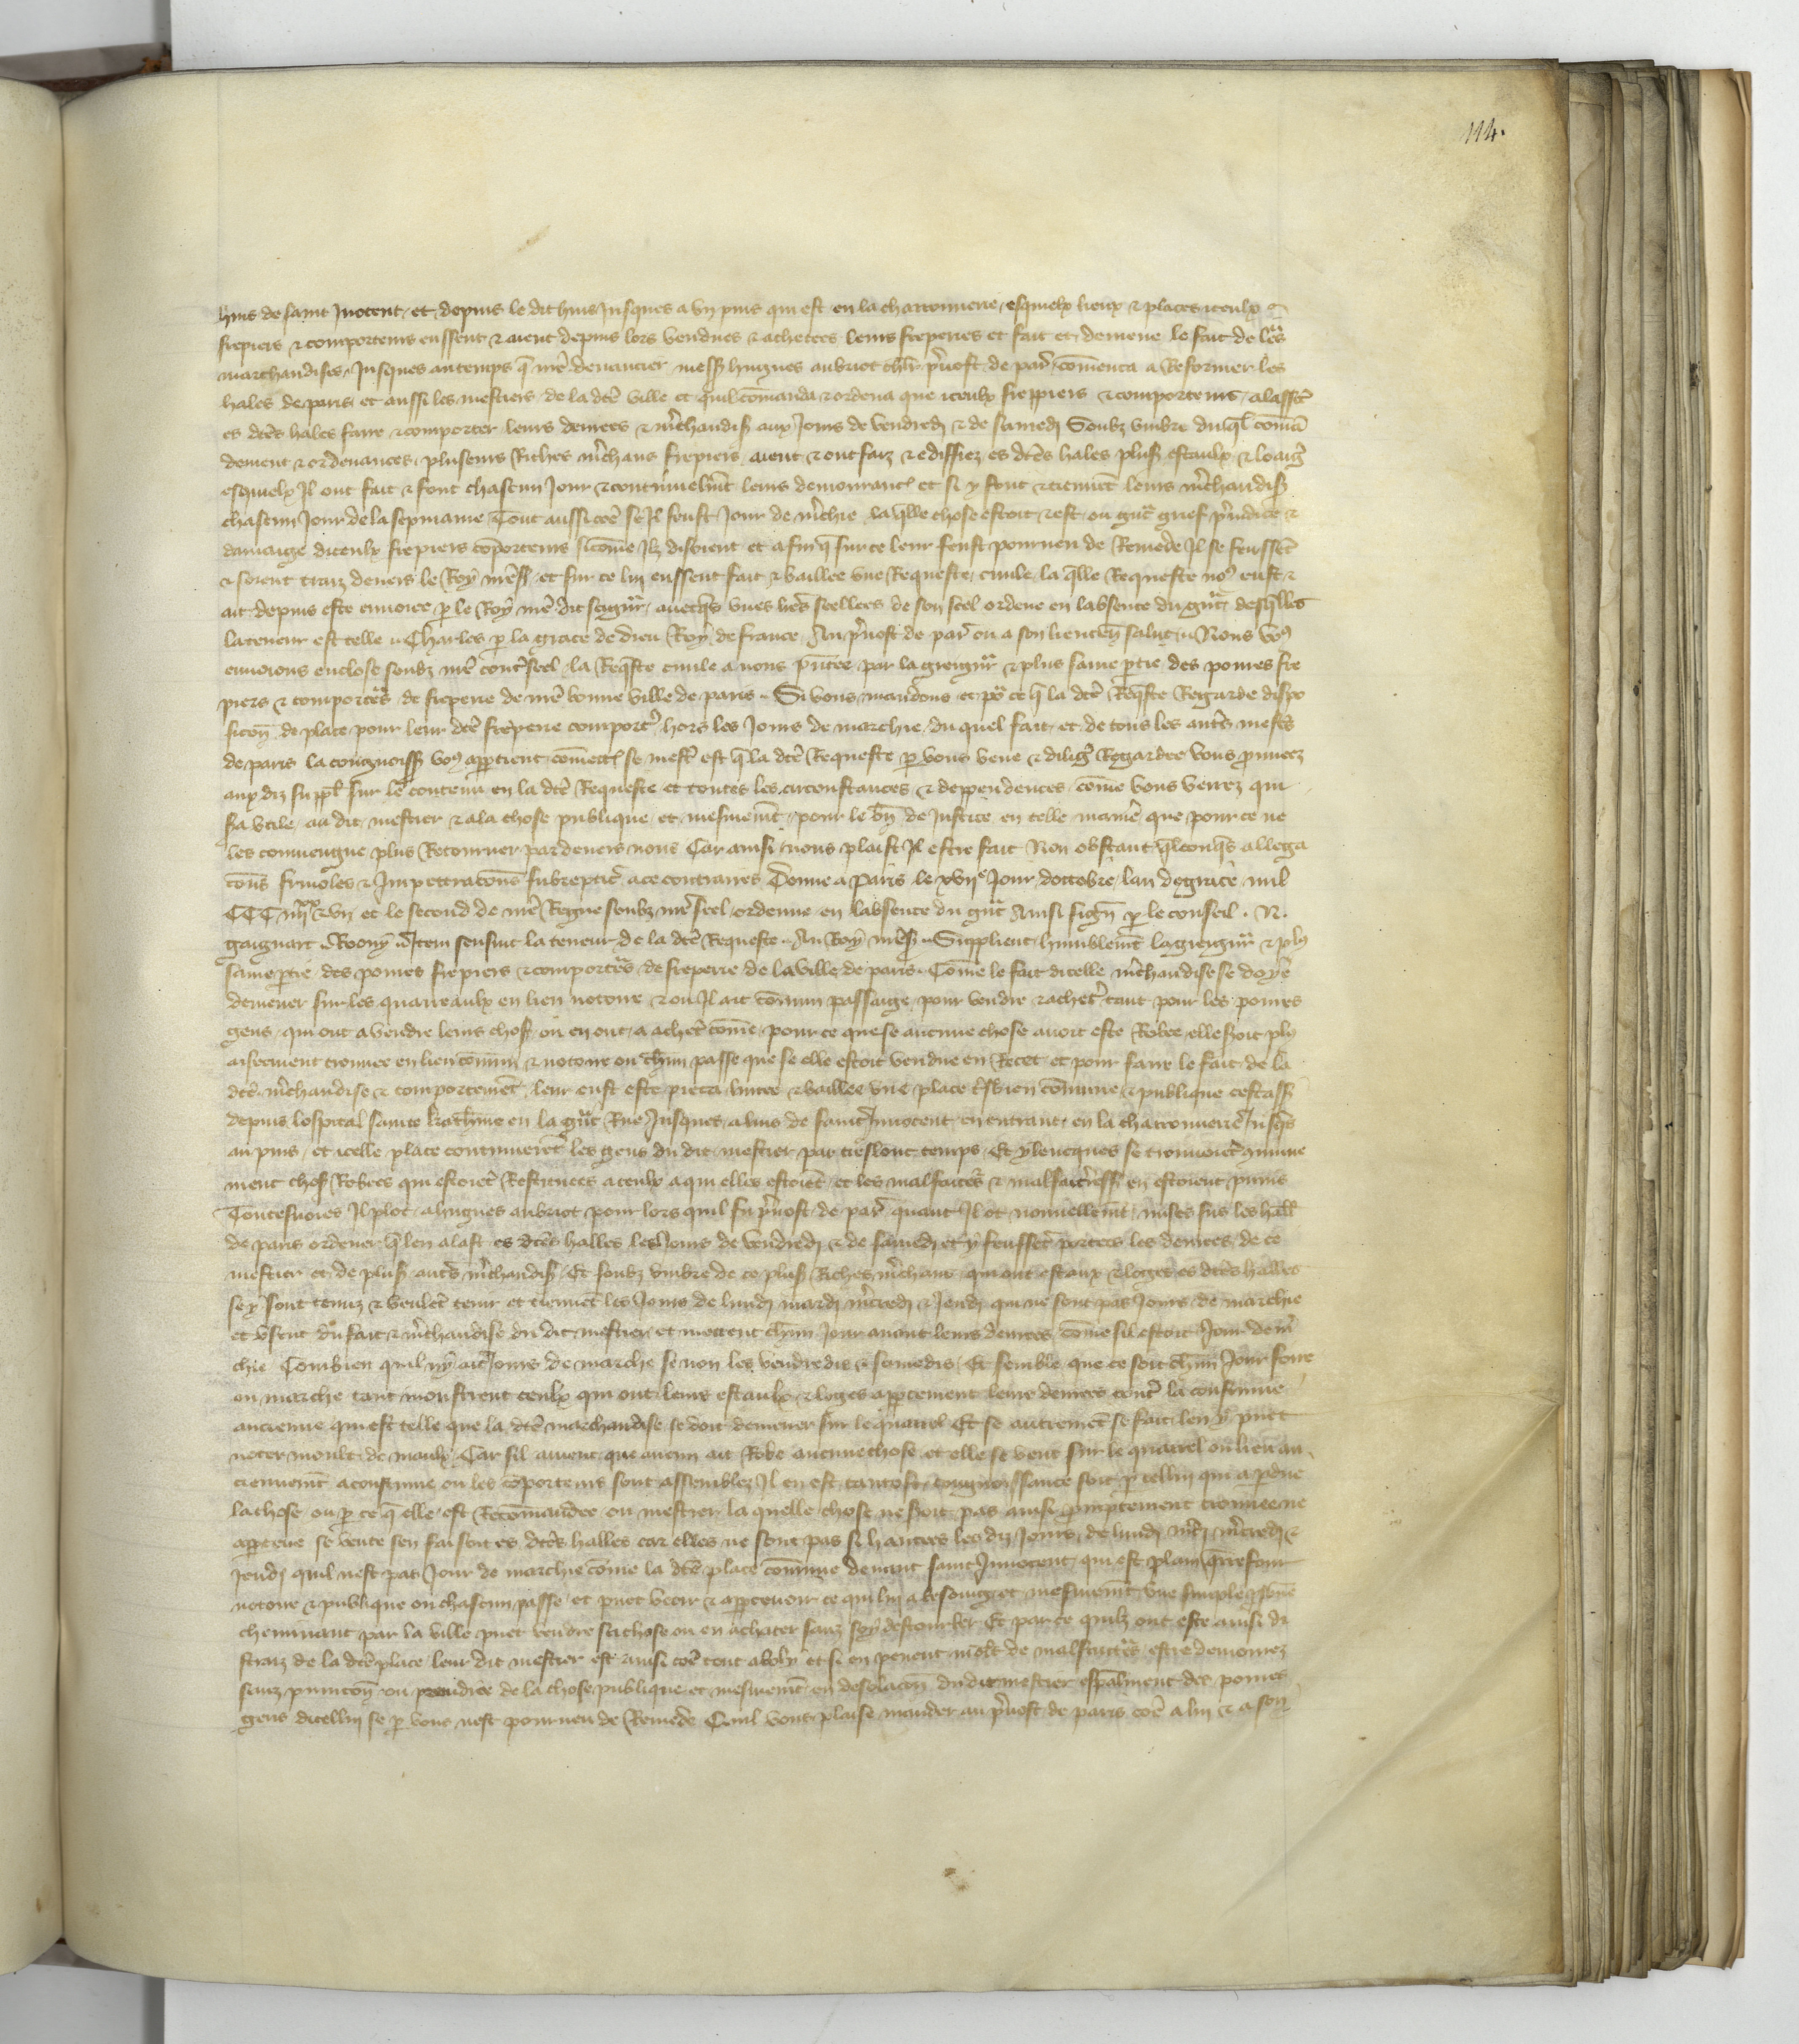 114.
huis de saint Inocent et depuis le dit huis Jusques a un puis qui est en la charronnerie esquielx lieux & places iceulx
frepiers & comporteurs eussent & aient depuis lors vendues & achetees leurs freperies et fait et demene le fait de leurs
marchandises Jusques au temps q̄ nr̄e devancier mess hugues aubriot chlr p̄vost de par̄ comença a Reformer les
hales de paris et aussi les mestiers de la dcē ville et quil comanda & ordena que iceulx freppiers & comporteurs alassēt
es dcēs hales faire & comporter leurs denrees & m̄chandis aux Jours de vendredi & de samedi Soubz umbre duq̄l comā
dement & ordenances plusieurs Riches m̄chans frepiers aient & ont faiz & ediffiez es dcēs hales plus estaulx & loages
esquielx Il ont fait & font chascun Jour & continuelmēt leurs demourances et si y font & tiennēt leurs m̄chandis
chascun Jour de la sepmaine Tout aussi cōe se Il feust Jour de m̄chie la q̄lle chose estoit & est ou gn̄t grief p̄judice &
damaige diceulx frepiers cōporteurs sicōme Ilz disoient et afin q̄ sur ce leur feust pourveu de Remede Il se feussēt
& soient traiz devers le Roy nr̄e s et sur ce lui eussent fait & baillee une Requeste civile la q̄lle Requeste no9 eust &
ait depuis este envoiee p le Roy nr̄e dit seigur avecq̄s unes lr̄es seellees de son seel ordene en labsence du gn̄t desq̄lles
la teneur est telle Charles p la grace de dieu Roy de france Au p̄vost de par̄ ou a son lieuten̄ salut Nous vo9
envoions enclose soubz nr̄e contr̄seel la Req̄ste civile a nous p̄ntee par la greign̄r & plus saine p̄tie des povres fre
piers & comportēs de freperie de nr̄e bonne ville de paris Si vous mandons et pōr ce q̄ la dcē Req̄ste Regarde dispo
sicōn de place pour leur dcē freperie comport̄ hors les Jours de marchie du quel fait et de tous les autr̄s mest̄s
de paris la congnoiss vo9 appartient cōmett se mest̄ est q̄ la dcē Requeste p vous veue & diliḡ Regardee vous p̄vueez
aux diz suppl̄ sur le contenu en la dcē Requeste et toutes les circonstances & deppendences cōme vous verrez qui
s̄a utile au dit mestier & a la chose publique et mesmemēt pour le bn̄ de Justice en telle manie que pour ce ne
les conviengne plus Retourner pardevers nous Car ainsi nous plaist Il estre fait Non obstant q̄lconq̄s allega
cōns frivoles & Impettracōns subreptic̄ a ce contraires Donne a Paris le xviie Jour doctobre lan de grace mil
CCC iiiixx & un et le second de nr̄e Regne soubz nr̄e seel ordenne en labsence du gn̄t Ainsi sign̄ p le conseil N.
gaignart Roony Item sensuit la teneur de la dcē Requeste Au Roy nr̄e s Supplient humblemēt la greign̄r & pl9
saine p̄tie des povres frepiers & comportēs de freperie de la ville de paris Cōme le fait dicelle m̄chandise se doye
demener sur les quarreaulx en lieu notoire & ou Il ait cōmun passaige pour vendre & achet̄ tant pour les povres
gens qui ont a vendre leurs chos ou en ont a achet̄ cōme pour ce que se aucune chose avoit este Robee elle s̄oit pl9
aisieement trouvee en lieu cōmun & notoire ou chūn passe que se elle estoit vendue en Recet et pour faire le fait de la
dcē m̄chandise & comportemēt leur eust este pieca livree & baillee une place t̄sbien cōmune & publique cestass
depuis lospital sainte kath̄ine en la gn̄t Rue Jusques a luis de saint Innocent en entrant en la charronnerie Jusq̄s
au puis et icelle place continuerēt les gens du dit mestier par tres lonc temps Et ylencques se trouvoiēt cōmune
ment chos Robees qui estoiēt Restituees a ceulx a qui elles estoiēt et les malfaictēs & malfait̄ress en estoient puniz
Toutesvoies Il plot a hugues aubriot pour lors quil fu p̄vost de par̄ quant Il ot nouvellemēt mises sus les hall
de paris ordener q̄ len alast es dcēs halles les Jours de vendredi & de samedi et y feussēt portees les denrees de ce
mestier et de plus autr̄s m̄chandis Et soubz umbre de ce plus Riches m̄chans qui ont estaux & loges es dcēs halles
se y sont tenuz & veulēt tenir et tiennēt les Jours de lundi mardi m̄credi & Jeudi qui ne sont pas Jours de marchie
et usent du fait & m̄chandise du dit mestier et mettent chūn Jour avant leurs denrees cōme sil estoit Jour de m̄
chie Combien quil ny ait Jours de marche se non les vendredis & samedis Et semble que ce soit chūn Jour foire
ou marche tant monstrent ceulx qui ont leurs estaulx & loges appertement leurs denrees cont̄ la coustume
ancienne qui est telle que la dcē marchandise se doit demener sur le quarrel Et se autremēt se fait len y puet
noter moult de maulx Car sil avient que aucun ait Robe aucune chose et elle se vent sur le quarrel ou lieu an
ciennemēt acoustume ou les cōporteurs sont assemblez Il en est tantost congnoissance soit p cellui qui a p̄due
la chose ou p ce q̄ elle est Recōmandee ou mestier la quelle chose ne s̄oit pas ainsi promptement trouvee ne
apperceue se vente sen faisoit es dcēs halles car elles ne sont pas si hantees les diz Jours de lundi m̄di m̄credi &
Jeudi quil nest pas Jour de marchie cōme la dcē place cōmune devant saint Innocent qui est plain q̄rrefour
notoire & publique ou chascun passe et puet veoir & appercevoir ce qui lui a besoing et mesmemēt une simple p̄sōne
cheminant par la ville puet vendre sa chose ou en achater sanz soy destourber Et par ce quilz ont este ainsi di
straiz de la dcē place leur dit mestier est ainsi cōe tout aboly et si en pevent mōlt de malfaict̄s estre demourez
sanz punicōn ou p̄judice de la chose publique et mesmemēt en desolacōn du dit mestier esp̄alment des povres
gens dicellui se p vous nest pourveu de Remede Quil vous plaise mander au p̄vost de paris cōe a lui & a son